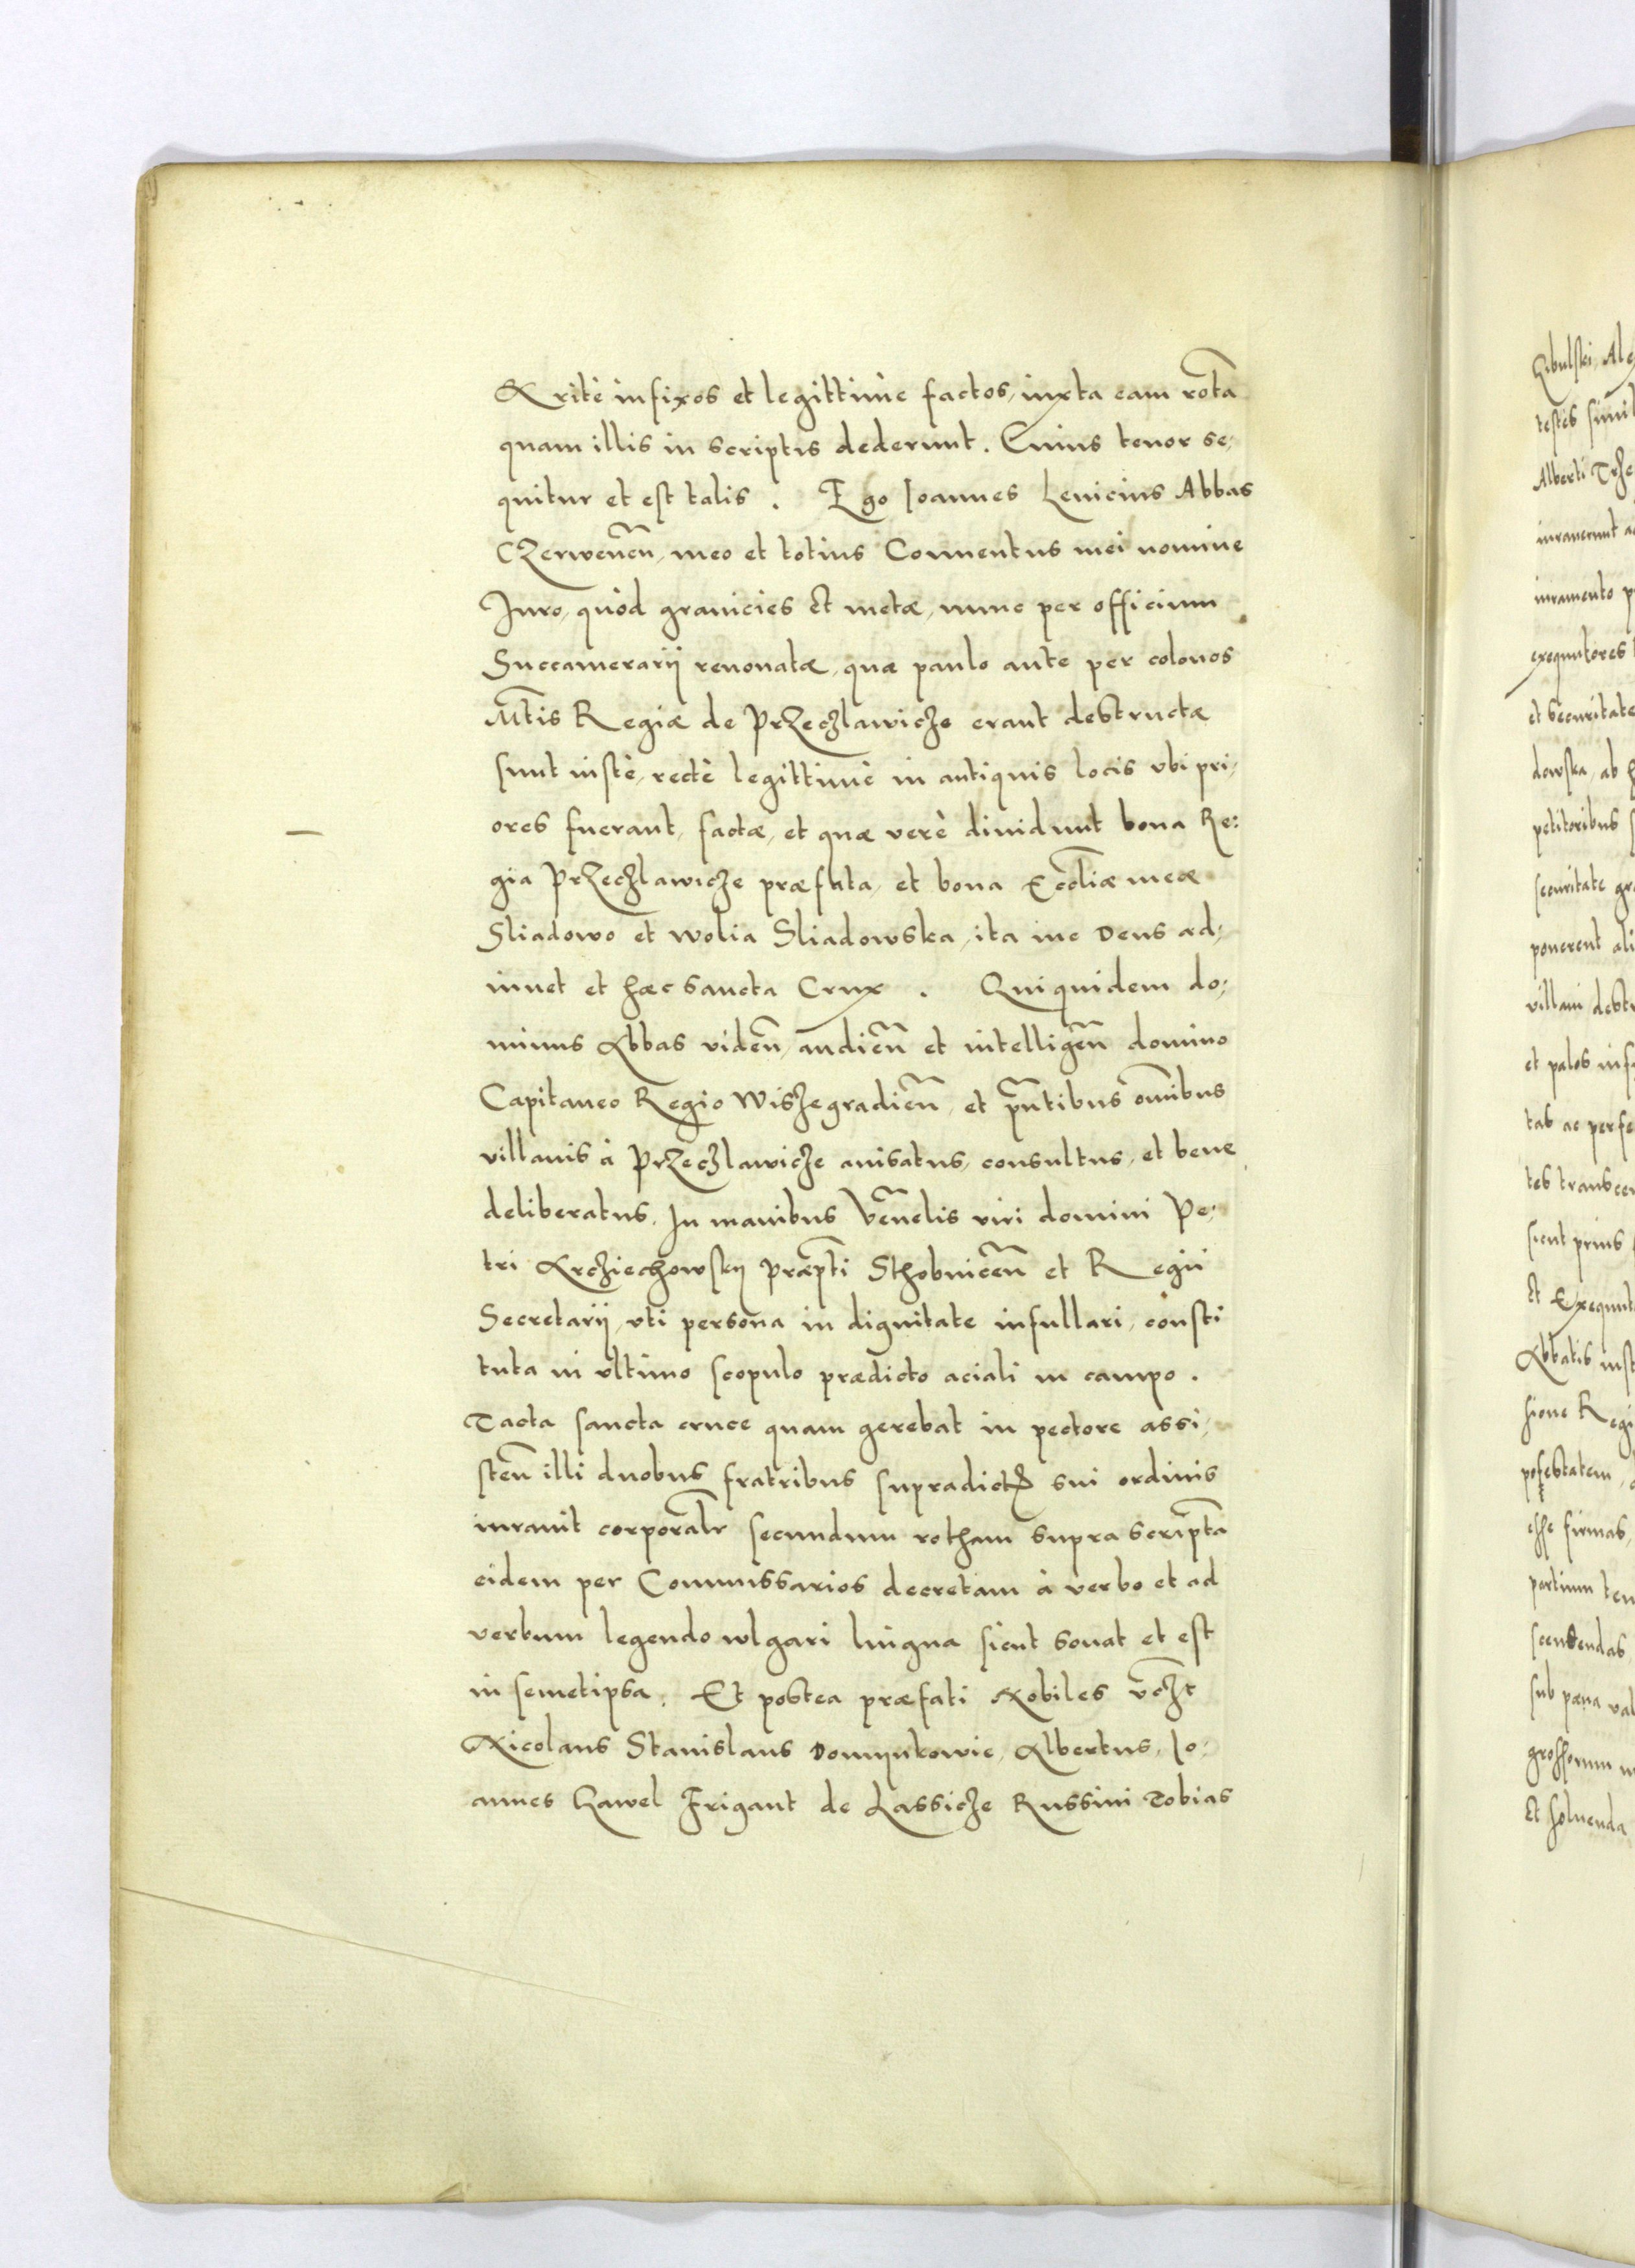 & ritè infixos et legittimè factos, iuxta eam rotã
quam illis in scriptis dederunt. Cuius tenor se,
quitur et est talis. Ego Ioannes Lenicius Abbas
Czerwenẽn, meo et totius Conuentus mei nomine
Iuro, quòd granicies et metæ, nunc per officium
Succamerarij renouatæ, quæ paulo ante per colonos
Mtis Regiæ de Przeczlawicze erant destructæ
sunt iustè, rectè legittimè in antiquis locis vbi pri,
ores fuerant, factæ, et quæ verè diuidunt bona Re:
gia Przeczlawicze præfata, et bona Ecctiæ meæ
Sliadowo et Wolia Sliadowska, ita me Deus ad,
iuuet et hæc sancta Crux. Qui quidem do,
minus Abbas vidẽn, audiẽn et intelligẽn domino
Capitaneo Regio Wiszegradiẽn, et pñtibus õmibus
villanis à Przeczlawicze auisatus, consultus, et bene
deliberatus, In manibus Vẽnelis viri domini Pe,
tri Arcziechowskij Præpti Sthobnicẽn et Regii
Secretarij, vti persona in dignitate infullari, consti
tuta in vltimo scopulo prædicto aciali in campo.
Tacta sancta cruce quam gerebat in pectore assi,
stẽn illi duobus fratribus supradictꝝ sui ordinis
iurauit corporalr secundum rotham supra scriptã
eidem per Commissarios decretam à verbo et ad
verbum legendo wlgari lingua sicut sonat et est
in semetipsa. Et postea præfati Nobiles vczt
Nicolaus Stanislaus Dominkowic, Albertus, Io,
annes Gawel Frigant de Lassicze Russini Tobias
Alberti
iuramento
et securitate
dowska, ab
petitoribus
securitate
ponerent
et palos
sicut prius
Abbatis
esse firmas,
sub pæna
et soluenda